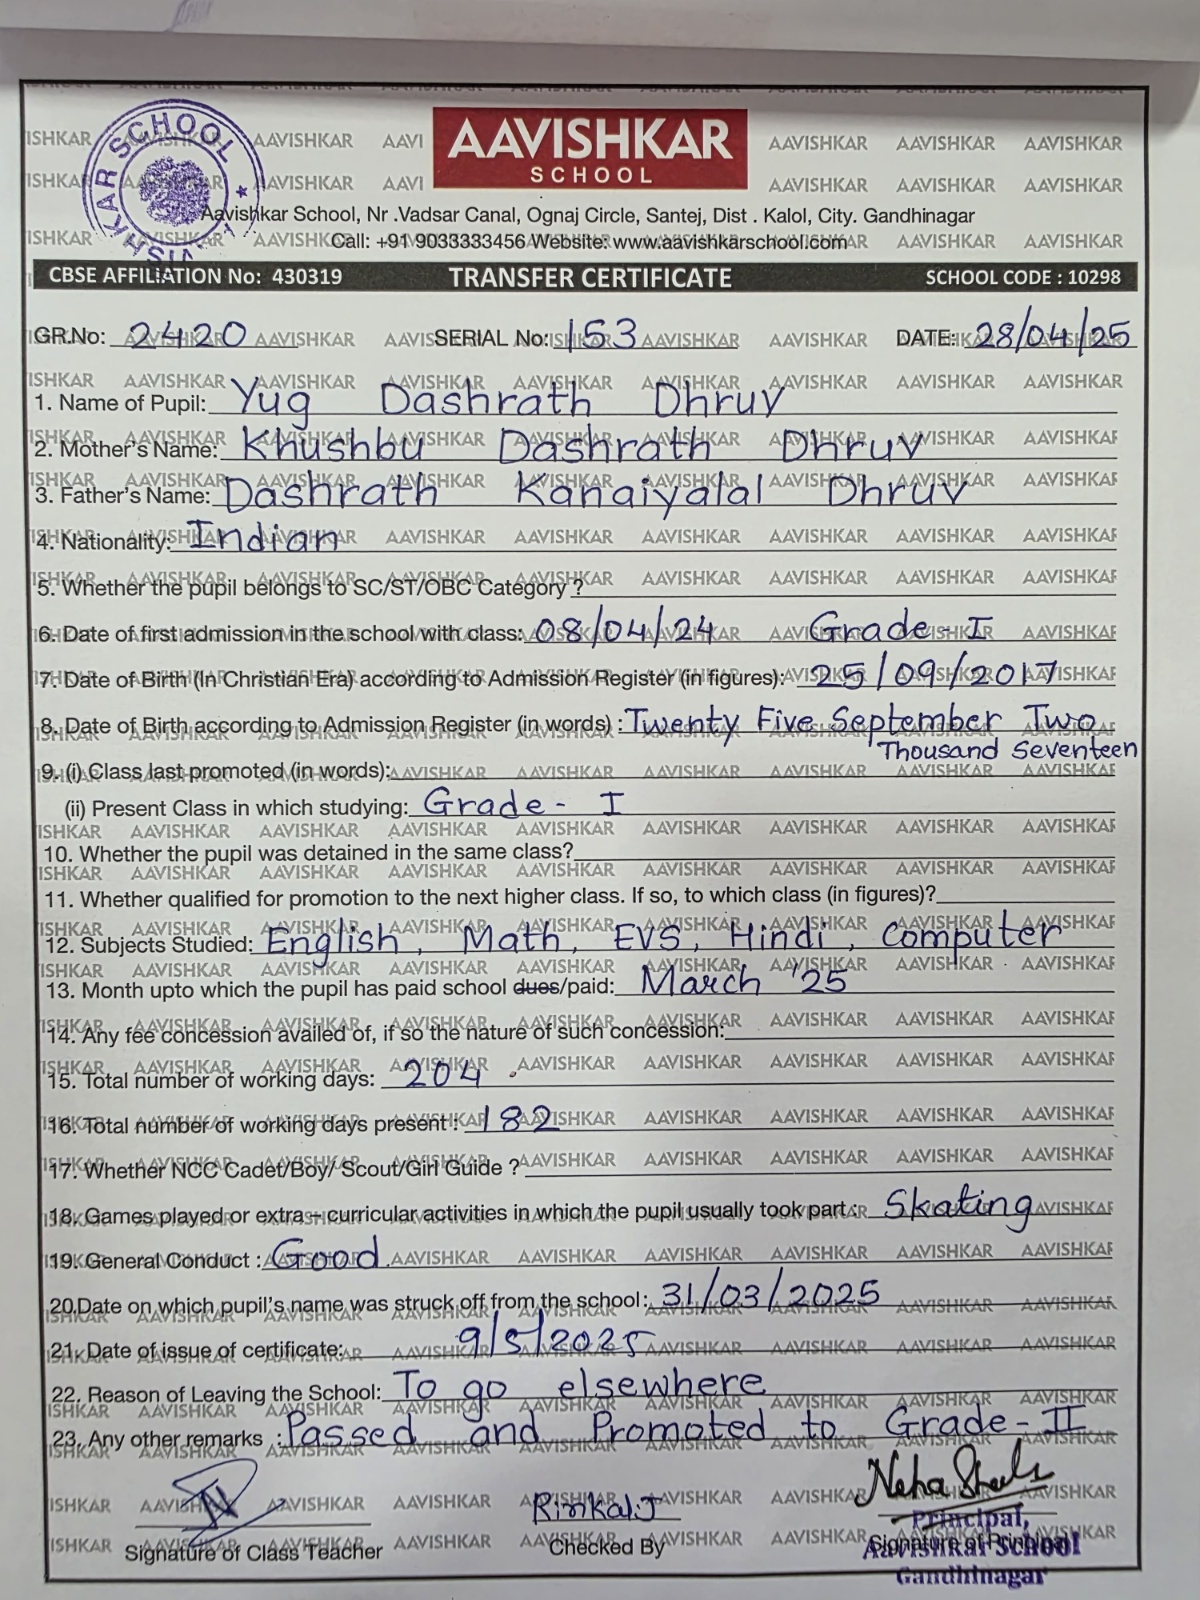 AAVISHKAR SCHOOL
AAVISHKAR
SCHOOL
Aavishkar School, Nr .Vadsar Canal, Ognaj Circle, Santej, Dist . Kalol, City. Gandhinagar
Call: +91 9033333456 Website: www.aavishkarschool.com
CBSE AFFILIATION No: 430319 TRANSFER CERTIFICATE SCHOOL CODE : 10298
GR.No: 2420 SERIAL No: 153 DATE: 28/04/25
1. Name of Pupil: Yug Dashrath Dhruv
2. Mother's Name: Khushbu Dashrath Dhruv
3. Father's Name: Dashrath Kanaiyalal Dhruv
4. Nationality: Indian
5. Whether the pupil belongs to SC/ST/OBC Category ?
6. Date of first admission in the school with class: 08/04/24 Grade-I
7. Date of Birth (In Christian Era) according to Admission Register (in figures): 25/09/2017
8. Date of Birth according to Admission Register (in words) : Twenty Five September Two
Thousand Seventeen
9. (i) Class last promoted (in words):
(ii) Present Class in which studying: Grade- I
10. Whether the pupil was detained in the same class?
11. Whether qualified for promotion to the next higher class. If so, to which class (in figures)?
12. Subjects Studied: English, Math, EVS, Hindi, Computer
13. Month upto which the pupil has paid school dues/paid: March '25
14. Any fee concession availed of, if so the nature of such concession:
15. Total number of working days: 204
16. Total number of working days present : 182
17. Whether NCC Cadet/Boy/ Scout/Girl Guide ?
18. Games played or extra – curricular activities in which the pupil usually took part : Skating
19. General Conduct : Good
20.Date on which pupil's name was struck off from the school: 31/03/2025
21. Date of issue of certificate: 9/5/2025
22. Reason of Leaving the School: To go elsewhere
23. Any other remarks : Passed and Promoted to Grade-II
Rinkal.J Neha
Signature of Class Teacher Checked By Signature of Prinipal
Principal,
Aavishkar School
Gandhinagar